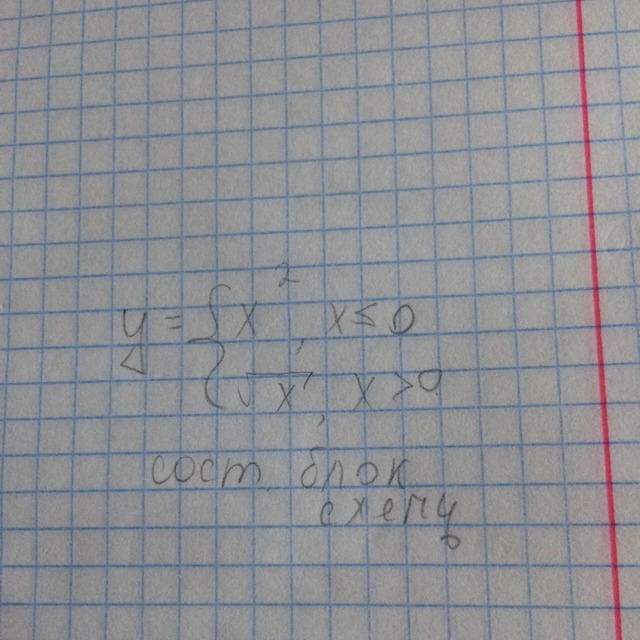 y = { x², x ≤ 0
{ √x, x > 0
сост. блок
схему